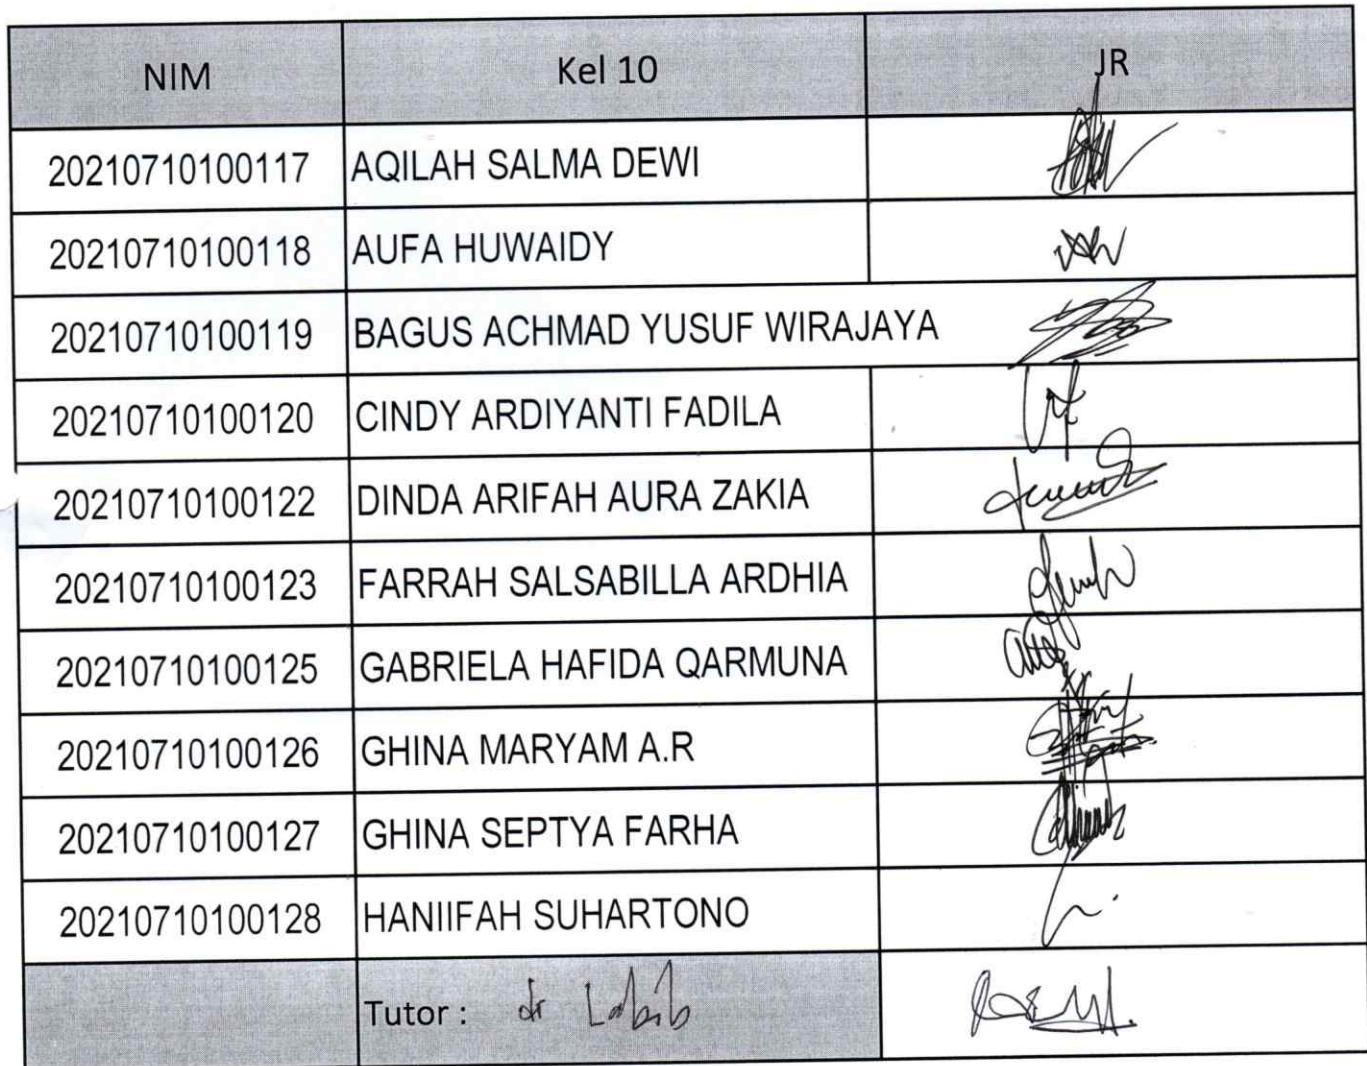 NIM Kel 10 JR
20210710100117 AQILAH SALMA DEWI
20210710100118 AUFA HUWAIDY
20210710100119 BAGUS ACHMAD YUSUF WIRAJAYA
20210710100120 CINDY ARDIYANTI FADILA
20210710100122 DINDA ARIFAH AURA ZAKIA
20210710100123 FARRAH SALSABILLA ARDHIA
20210710100125 GABRIELA HAFIDA QARMUNA
20210710100126 GHINA MARYAM A.R
20210710100127 GHINA SEPTYA FARHA
20210710100128 HANIIFAH SUHARTONO
Tutor : dr Labib